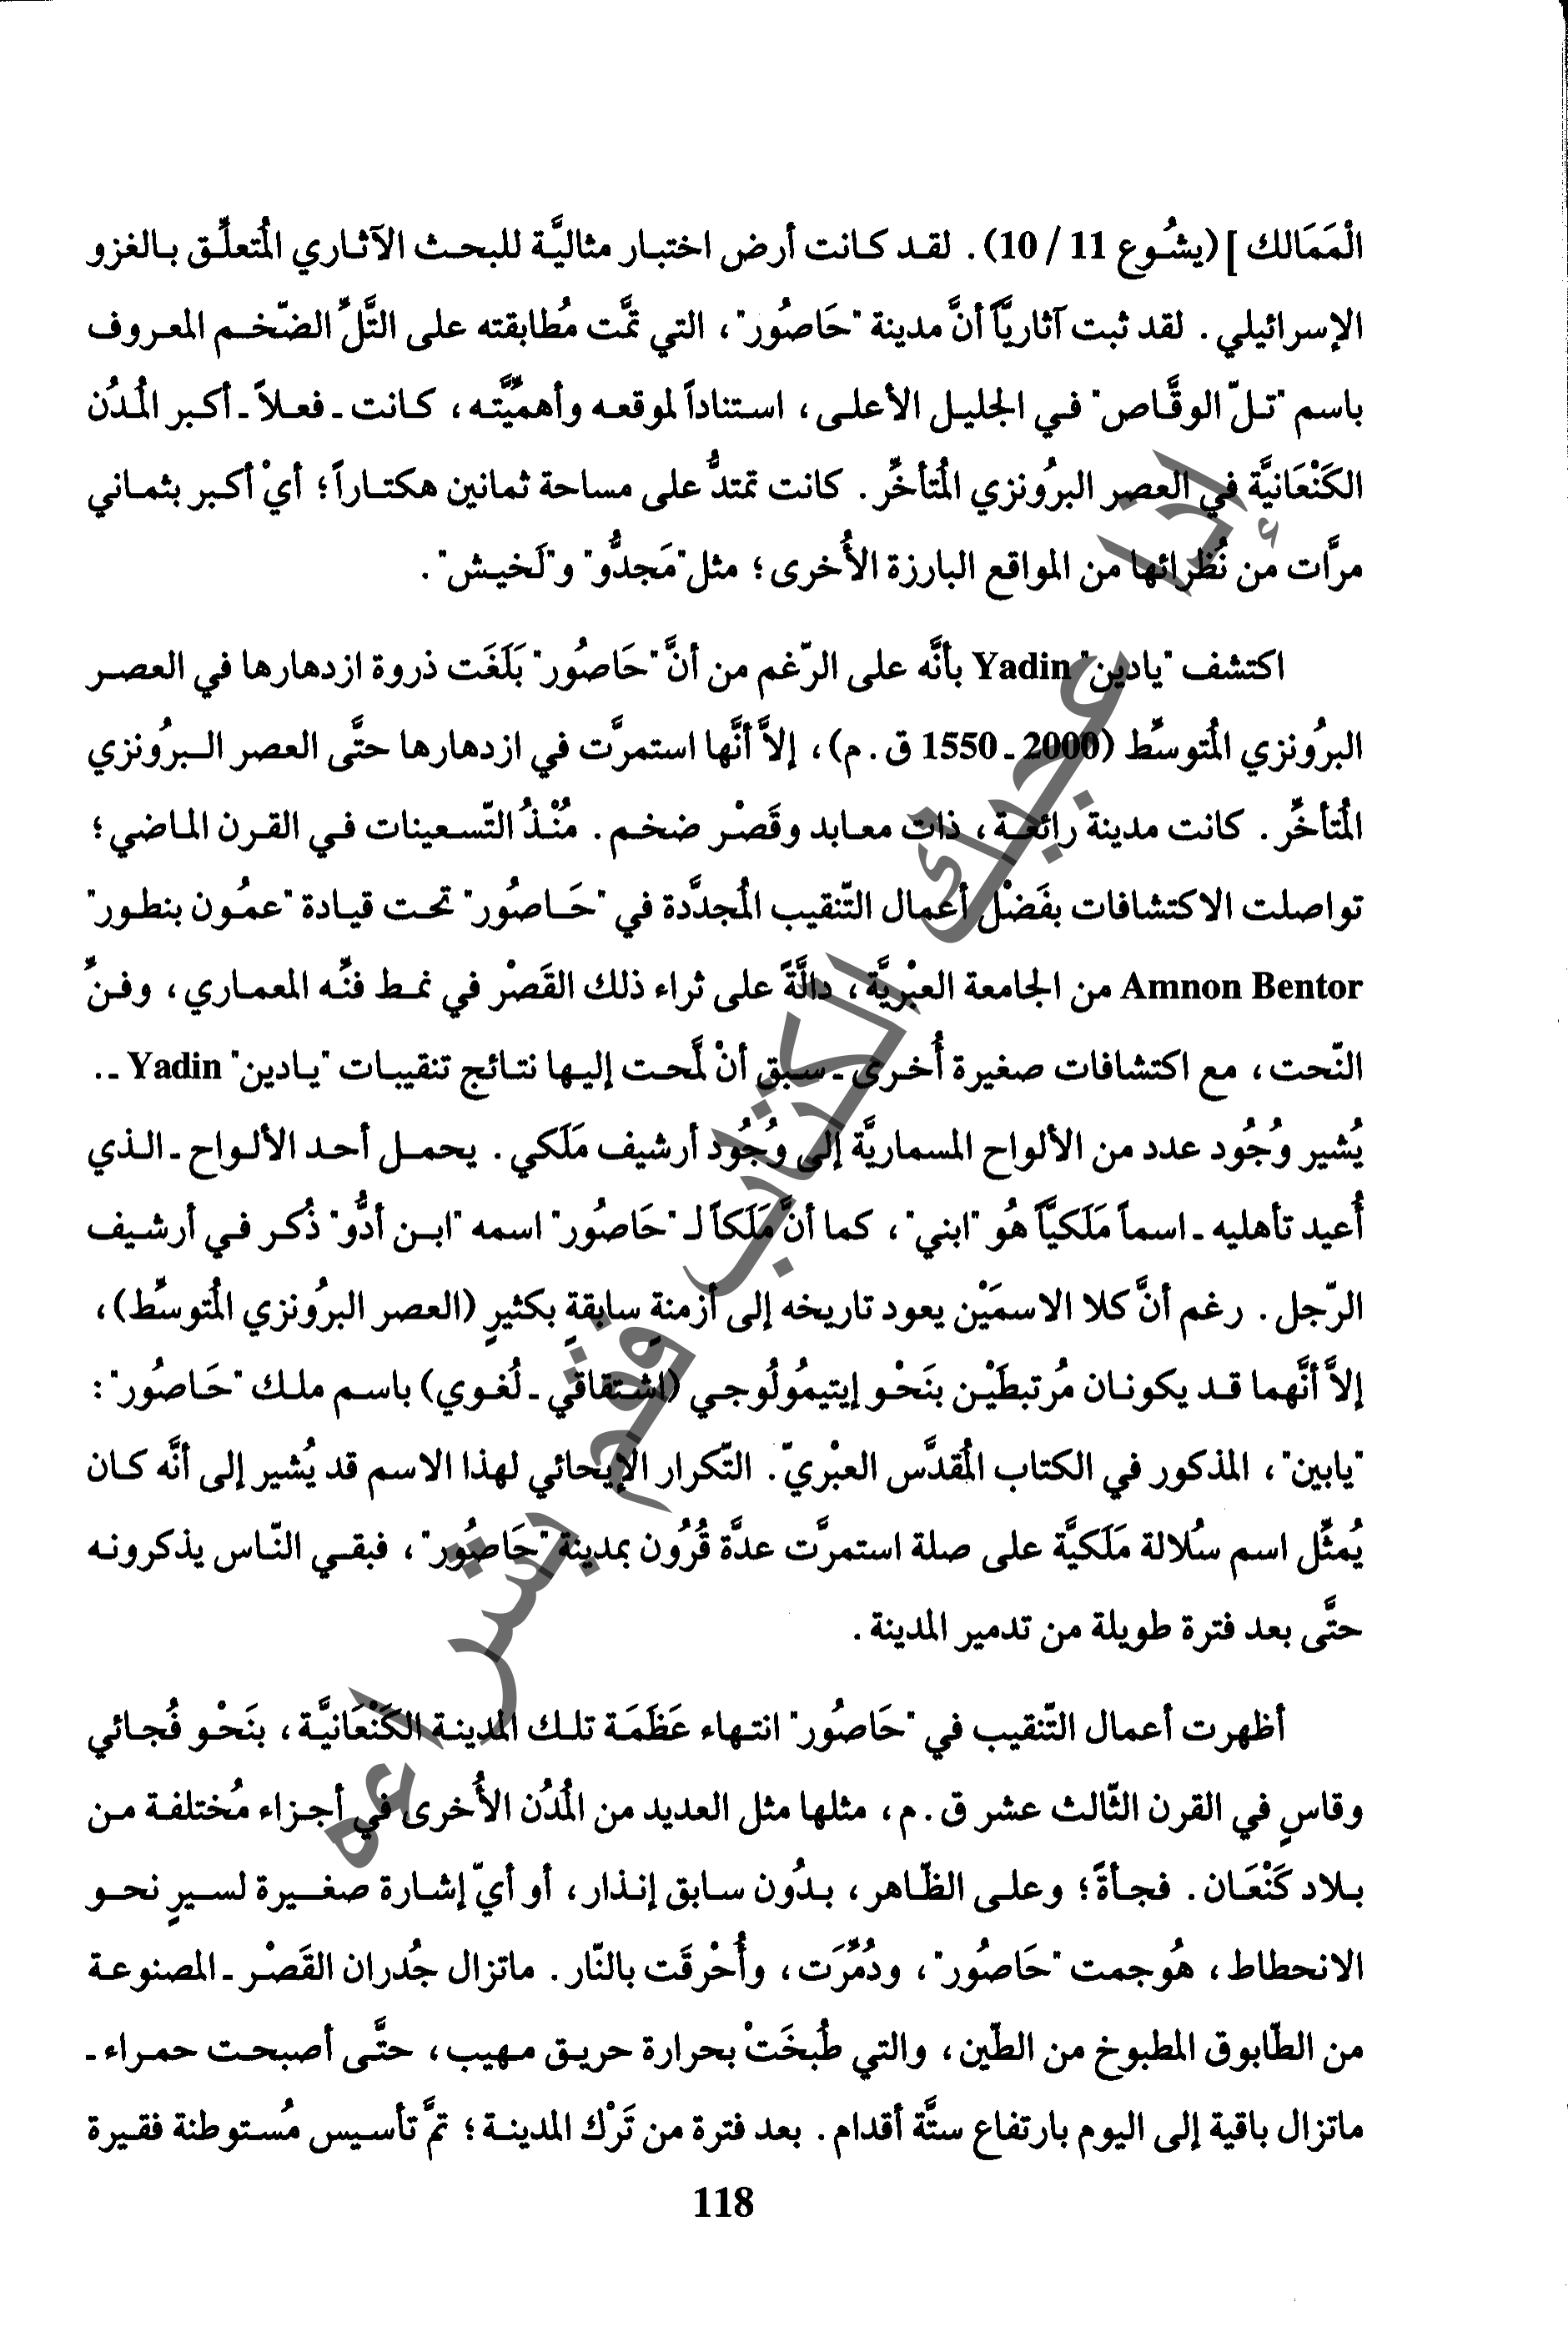 الْمَمَالك ] (يشُوع 11 / 10) . لقد كانت أرض اختبار مثاليَّة للبحث الآثاري المُتعلِّق بالغزو
الإسرائيلي . لقد ثبت آثاريَّاً أنَّ مدينة "حَاصُور" ، التي تمَّت مُطابقته على التَّلِّ الضّخم المعروف
باسم "تلّ الوقَّاص" في الجليل الأعلى ، استناداً لموقعه وأهميَّته ، كانت ـ فعلاً ـ أكبر المُدُن
الكَنْعَانيَّة في العصر البرُونزي المُتأخِّر . كانت تمتدُّ على مساحة ثمانين هكتاراً ؛ أيْ أكبر بثماني
مرَّات من نُظرائها من المواقع البارزة الأُخرى ؛ مثل "مَجدُّو" و"لَخيش" .
اكتشف "يادين" Yadin بأنَّه على الرّغم من أنَّ "حَاصُور" بَلَغَت ذروة ازدهارها في العصر
البرُونزي المُتوسِّط (2000 ـ 1550 ق . م) ، إلاَّ أنَّها استمرَّت في ازدهارها حتَّى العصر البرُونزي
المُتأخِّر . كانت مدينة رائعة ، ذات معابد وقَصْر ضخم . مُنْذُ التّسعينات في القرن الماضي ؛
تواصلت الاكتشافات بفَضْل أعمال التّنقيب المُجدَّدة في "حَاصُور" تحت قيادة "عمُون بنطور"
Amnon Bentor من الجامعة العبْريَّة ، دالَّةً على ثراء ذلك القَصْر في نمط فنِّه المعماري ، وفنِّ
النّحت ، مع اكتشافات صغيرة أُخرى ـ سبق أنْ لمَّحت إليها نتائج تنقيبات "يادين" Yadin ـ .
يُشير وُجُود عدد من الألواح المسماريَّة إلى وُجُود أرشيف مَلَكي . يحمل أحد الألواح ـ الذي
أُعيد تأهليه ـ اسماً مَلَكيَّاً هُو "ابني" ، كما أنَّ مَلَكاً لـ "حَاصُور" اسمه "ابن أدُّو" ذُكر في أرشيف
الرّجل . رغم أنَّ كلا الاسمَيْن يعود تاريخه إلى أزمنةٍ سابقةٍ بكثيرٍ (العصر البرُونزي المُتوسِّط) ،
إلاَّ أنَّهما قد يكونان مُرتبطَيْن بنَحْو إيتيمُولُوجي (اشتقاقي ـ لُغوي) باسم ملك "حَاصُور" :
"يابين" ، المذكور في الكتاب المُقدَّس العبْريّ . التّكرار الإيحائي لهذا الاسم قد يُشير إلى أنَّه كان
يُمثِّل اسم سُلالة مَلَكيَّة على صلة استمرَّت عدَّة قُرُون بمدينة "حَاصُور" ، فبقي النّاس يذكرونه
حتَّى بعد فترة طويلة من تدمير المدينة .
أظهرت أعمال التّنقيب في "حَاصُور" انتهاء عَظَمَة تلك المدينة الكَنْعَانيَّة ، بنَحْو فُجائي
وقاسٍ في القرن الثّالث عشر ق . م ، مثلها مثل العديد من المُدُن الأُخرى في أجزاء مُختلفة من
بلاد كَنْعَان . فجأةً ؛ وعلى الظّاهر ، بدُون سابق إنذار ، أو أيّ إشارة صغيرة لسيرٍ نحو
الانحطاط ، هُوجمت "حَاصُور" ، ودُمِّرَت ، وأُحْرقَت بالنّار . ماتزال جُدران القَصْر ـ المصنوعة
من الطّابوق المطبوخ من الطّين ، والتي طُبخَتْ بحرارة حريق مهيب ، حتَّى أصبحت حمراء ـ
ماتزال باقية إلى اليوم بارتفاع ستَّة أقدام . بعد فترة من تَرْك المدينة ؛ تمَّ تأسيس مُستوطنة فقيرة
118
إذا عجبك الكتاب فقم بشراءه